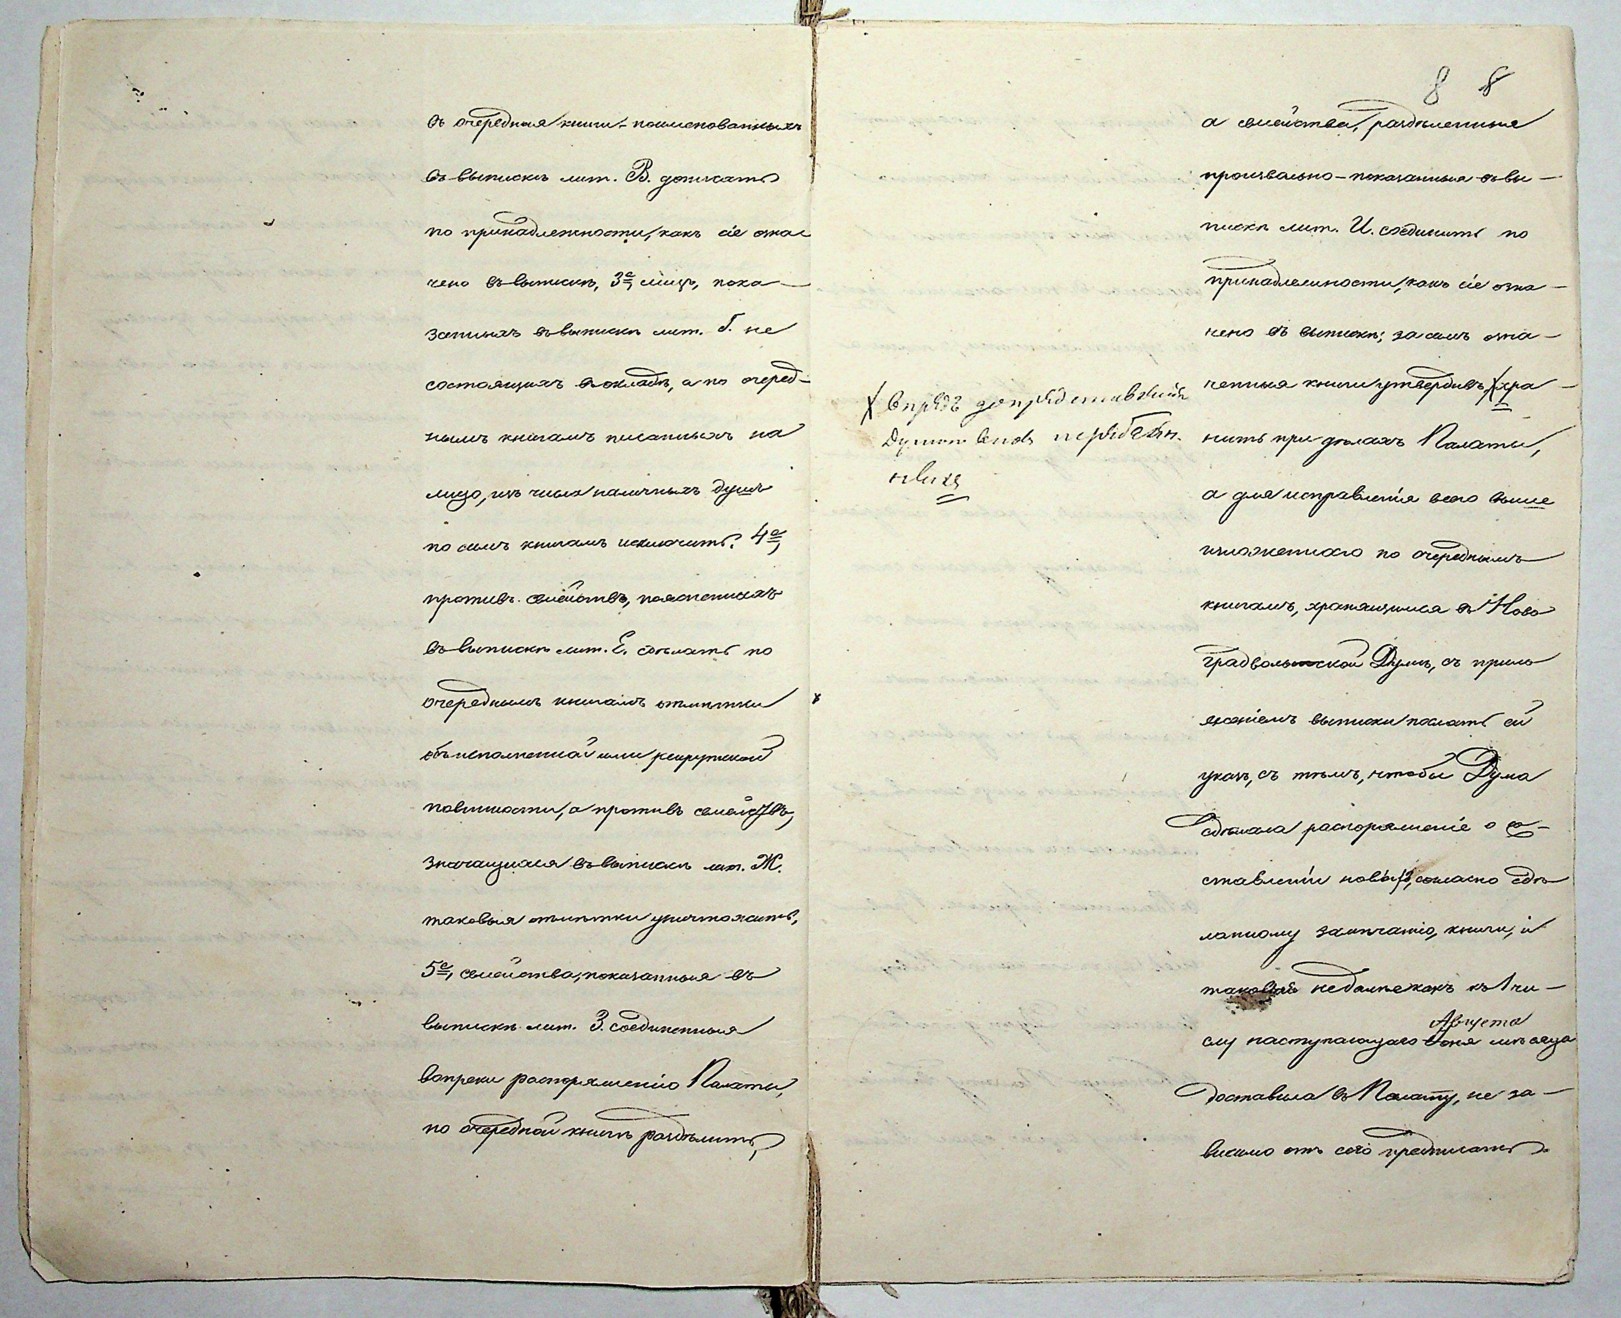 въ очередныя книги - поименованныхъ
въ выпискѣ лит. В. дописать
по принадлежности, какъ сіе озна
чено въ выпискѣ, 3е, лицъ, пока
занныхъ въ выпискѣ лит. Г. не
состоящихъ въ окладѣ, а по очеред-
нымъ книгамъ писанныхъ на
лицо, изъ числа наличныхъ душъ
по симъ книгамъ исключить. 4е,
противъ семействъ, поясненныхъ
въ выпискѣ лит. Е. сдѣлать по
очереднымъ книгамъ отмѣтки
объ исполненной ими рекрутской
повинности, а противъ семействъ,
значащихся въ выпискѣ лит. Ж.
таковыя отмѣтки уничтожить,
5е, семейства, показанныя въ
выпискѣ лит. З. соединенныя
вопреки распоряженію Палаты,
по очередной книгѣ раздѣлить,
8 8
а семейства, раздѣленныя
произвольно - показанныя въ вы-
пискѣ лит. И. соединить по
принадлежности, какъ сіе озна-
чено въ выпискѣ; за симъ озна-
ченныя книги утвердивъ, хра-
нить при дѣлахъ Палаты,
Х впредь до представленія
Думою вновь
а для исправленія всего выше
изложеннаго по очереднымъ
книгамъ, хранящимся въ Ново
градволынской Думѣ, съ прило
женіемъ выписки послать ей
указъ, съ тѣмъ, чтобы Дума
сдѣлала распоряженіе о со-
ставленіи новыхъ, согласно сдѣ
ланному замѣчанію, книги, и
таковыя не далѣе какъ къ 1 чи-
Августа
слу наступающаго мѣсяца
доставила въ Палату, не за-
висимо отъ сего предписать